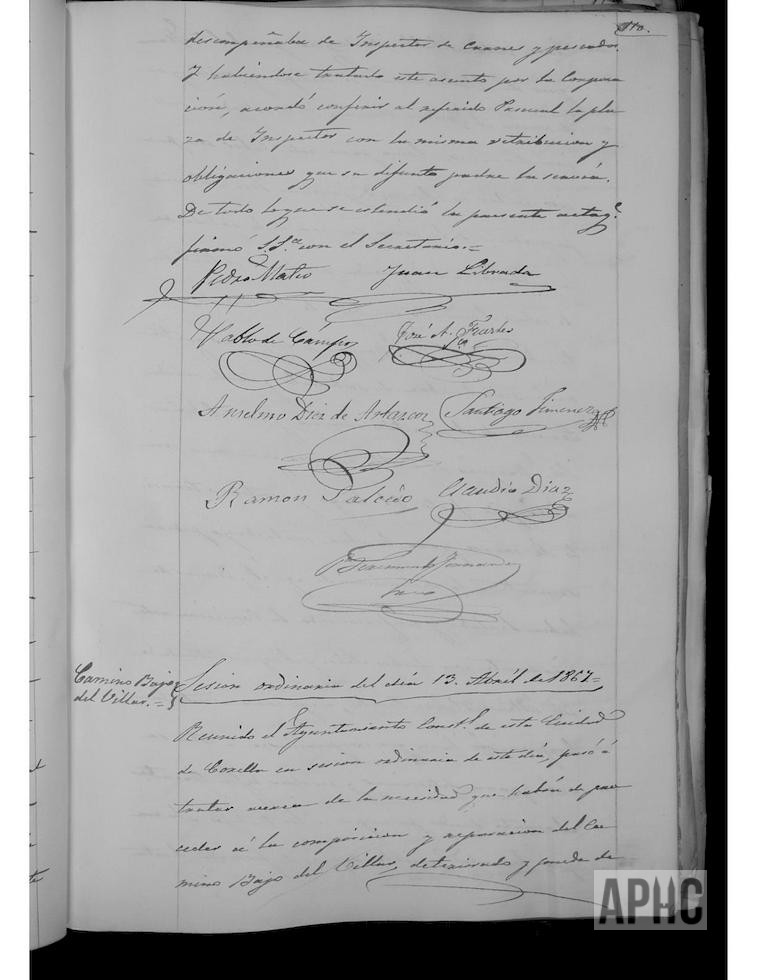 110.
descompeñaba de Inspector de Carnes y pescados.
Y habiéndose tratado este asunto por la Corpora
ción, acordó conferir al referido Pascual la pla
za de Inspector con la misma retribucion y
obligaciones que su difunto padre la servía.
De todo lo que se estendió la presente acta q.e
firmó S.S.a con el Secretario.=
Pedro Mateo Juan Librada
Pablo de Campos José A. Fuertes
Anselmo Diez de Arlazon Santiago Jimenez
Ramon Salcedo Claudio Diaz
Fernandez
Camino Bajo
del Villar.=
Sesion ordinaria del dia 13. Abril de 1867=
Reunido el Ayuntamiento Const.l de esta Ciudad
de Corella en sesion ordinaria de este dia, pasó á
tratar acerca de la necesidad que habia de pro
ceder á la composicion y reparacion del Ca-
mino Bajo del Villar, deteriorado y puede de
APHC